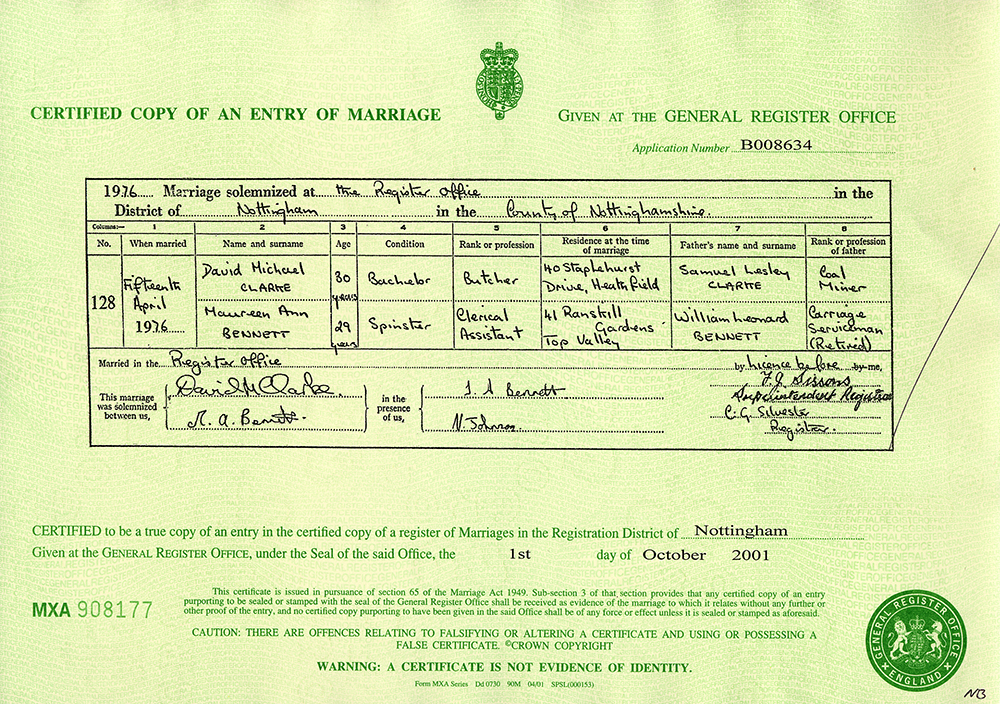 CERTIFIED COPY OF AN ENTRY OF MARRIAGE
GIVEN AT THE GENERAL REGISTER OFFICE
Application Number B008634
1976 Marriage solemnized at the Register Office in the
District of Nottingham in the County of Nottinghamshire.
Columns:— 1 2 3 4 5 6 7 8
No. When married Name and surname Age Condition Rank or profession Residence at the time of marriage Father's name and surname Rank or profession of father
128
Fifteenth
April
1976
David Michael
CLARKE
30
years
Bachelor
Butcher
40 Staplehurst
Drive, Heathfield
Samuel Lesley
CLARKE
Coal
Miner
Maureen Ann
BENNETT
29
years
Spinster
Clerical
Assistant
41 Ranskill
Gardens
Top Valley
William Leonard
BENNETT
Carriage
Serviceman
(Retired)
Married in the Register Office by Licence before by me,
This marriage
was solemnized
between us,
David M Clarke.
M. A. Bennett.
in the
presence
of us,
J. A Bennett
N. Johnson
F. J. Sissons
Superintendent Registrar
C. G. Silvester
Registrar.
CERTIFIED to be a true copy of an entry in the certified copy of a register of Marriages in the Registration District of Nottingham
Given at the GENERAL REGISTER OFFICE, under the Seal of the said Office, the 1st day of October 2001
MXA 908177
This certificate is issued in pursuance of section 65 of the Marriage Act 1949. Sub-section 3 of that section provides that any certified copy of an entry
purporting to be sealed or stamped with the seal of the General Register Office shall be received as evidence of the marriage to which it relates without any further or
other proof of the entry, and no certified copy purporting to have been given in the said Office shall be of any force or effect unless it is sealed or stamped as aforesaid.
CAUTION: THERE ARE OFFENCES RELATING TO FALSIFYING OR ALTERING A CERTIFICATE AND USING OR POSSESSING A
FALSE CERTIFICATE. ©CROWN COPYRIGHT
WARNING: A CERTIFICATE IS NOT EVIDENCE OF IDENTITY.
Form MXA Series Dd 0730 90M 04/01 SPSL(000153)
GENERAL REGISTER OFFICE
ENGLAND
NB